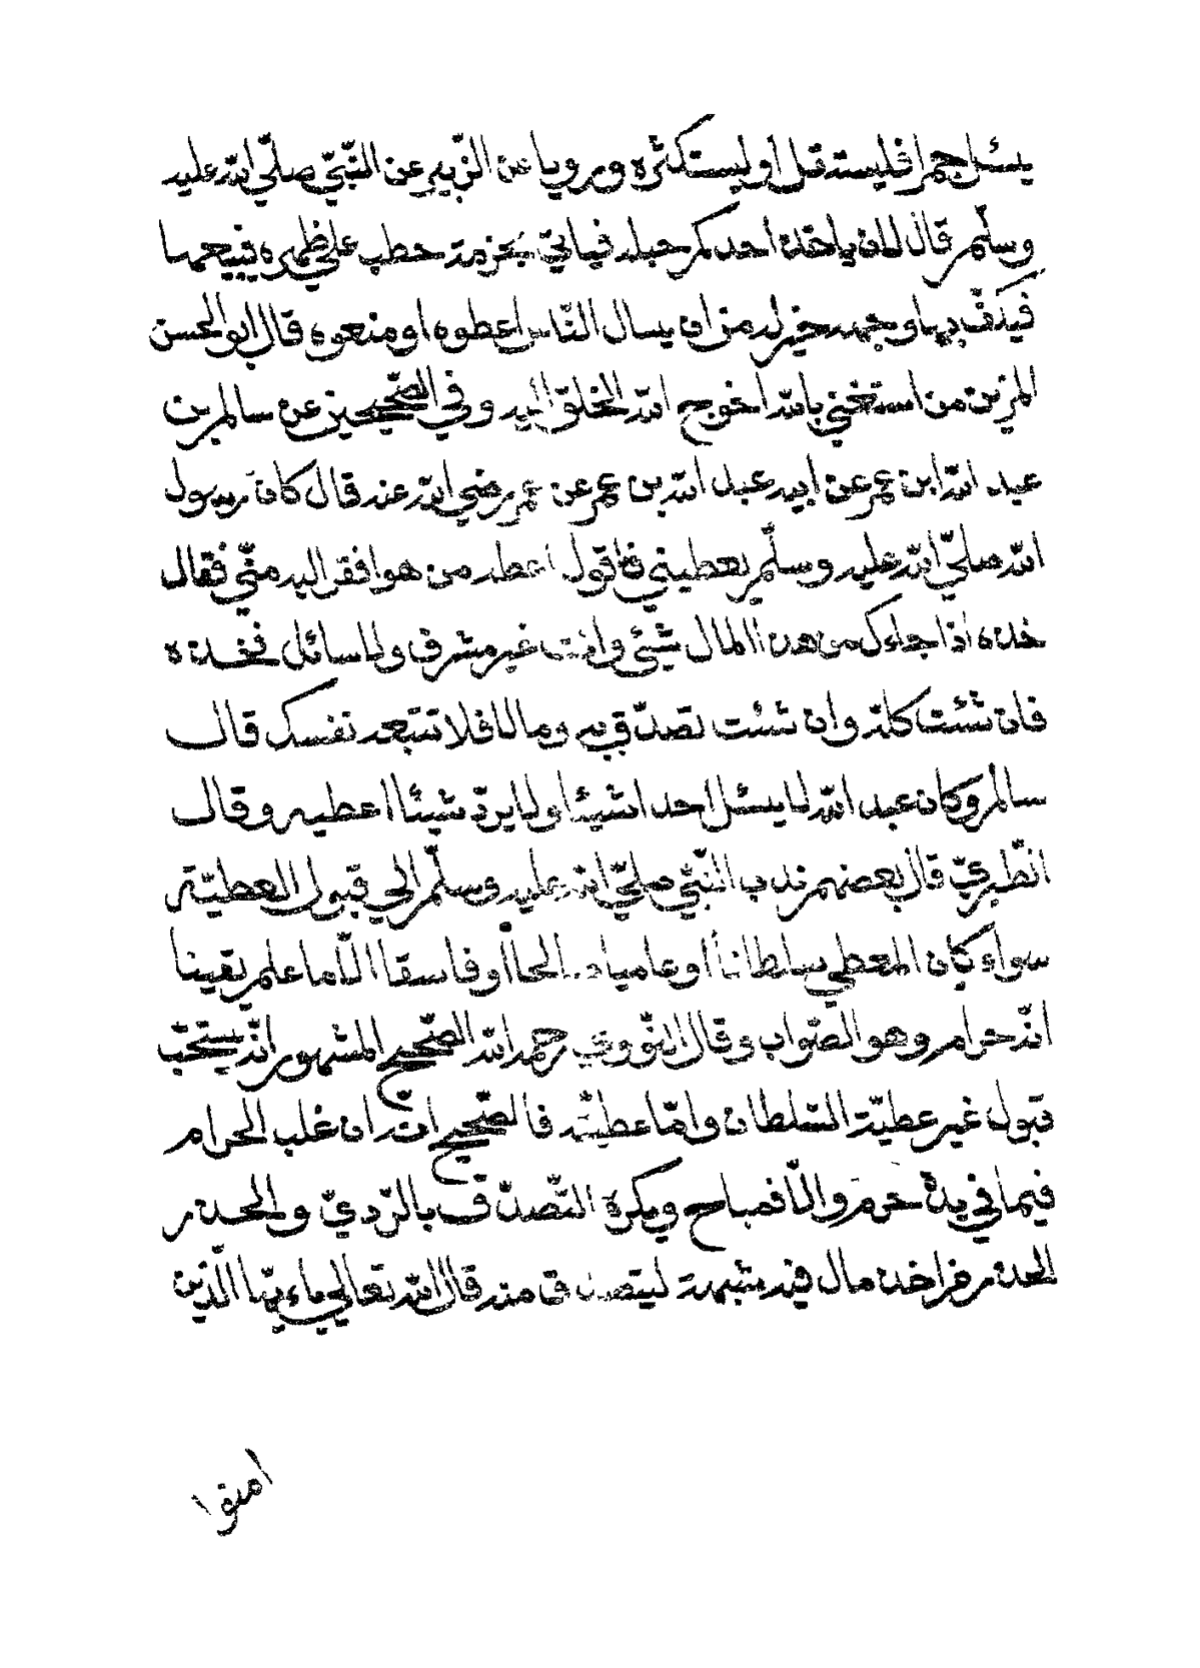 يسئل جمرا فليستقل أو ليستكثره ورويا عن الزّبير عن النّبيّ صلّي الله عليه
وسلّم قال لان ياخذ احدكم حبله فياتي بحزمة حطب علي ظهره فيبيعها
فيكفّ بها وجهه خير له من ان يسال النّاس اعطوه او منعوه قال ابو الحسن
المزين من استغني بالله احوج الله الخلق اليه وفي الصّحيحين عن سالم بن
عبد الله ابن عمر عن ابيه عبد الله بن عمر عن عمر رضي الله عنه قال كان رسول
الله صلّي الله عليه وسلّم يعطيني فاقول اعطه من هو افقر اليه منّي فقال
خذه اذا جاءك من هذا المال شيئ وانت غير مشرف ولا سائل فخذه
فان شئت كله وان شئت تصدّق به وما لا فلا تتبعه نفسك قال
سالم وكان عبد الله لا يسئل احدا شيئا ولا يردّ شيئا اعطيه وقال
الطّبريّ قال بعضهم ندب النّبيّ صلّي الله عليه وسلّم الي قبول العطيّة
سواء كان المعطي سلطانا أو عاميا صالحا أو فاسقا الّا ما علم يقينا
انّه حرام وهو الصّواب وقال النّوويّ رحمه الله الصّحيح المشهور انّه يستحبّ
قبول غير عطيّة السّلطان وامّا عطيّته فالصّحيح انّه ان غلب الحرام
فيما في يده حرم والّا فمباح ويكره التّصدّق بالرّديّ وليحذر
الحذر من اخذ مال فيه شبهة ليتصدق منه قال الله تعالي ياءيّها الّذين
امنوا